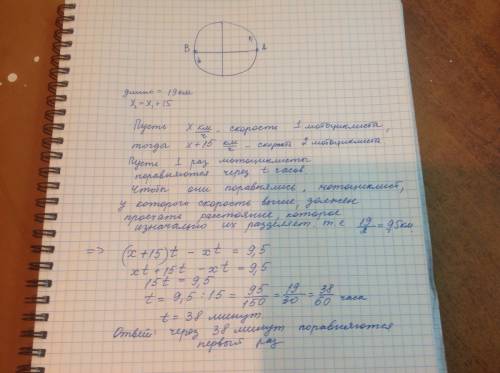 В А
длина = 19 км
x₂ = x₁ + 15
Пусть x км/ч - скорость 1 мотоциклиста,
тогда x+15 км/ч - скорость 2 мотоциклиста
Пусть 1 раз мотоциклисты
поравняются через t часов
Чтобы они поравнялись, мотоциклист,
у которого скорость выше, должен
проехать расстояние, которое
изначально их разделяет т.е 19/2 = 9,5 км.
=> (x+15)t - xt = 9,5
xt + 15t - xt = 9,5
15t = 9,5
t = 9,5 : 15 = 95/150 = 19/30 = 38/60 часа
t = 38 минут.
Ответ: через 38 минут поравняются
первый раз